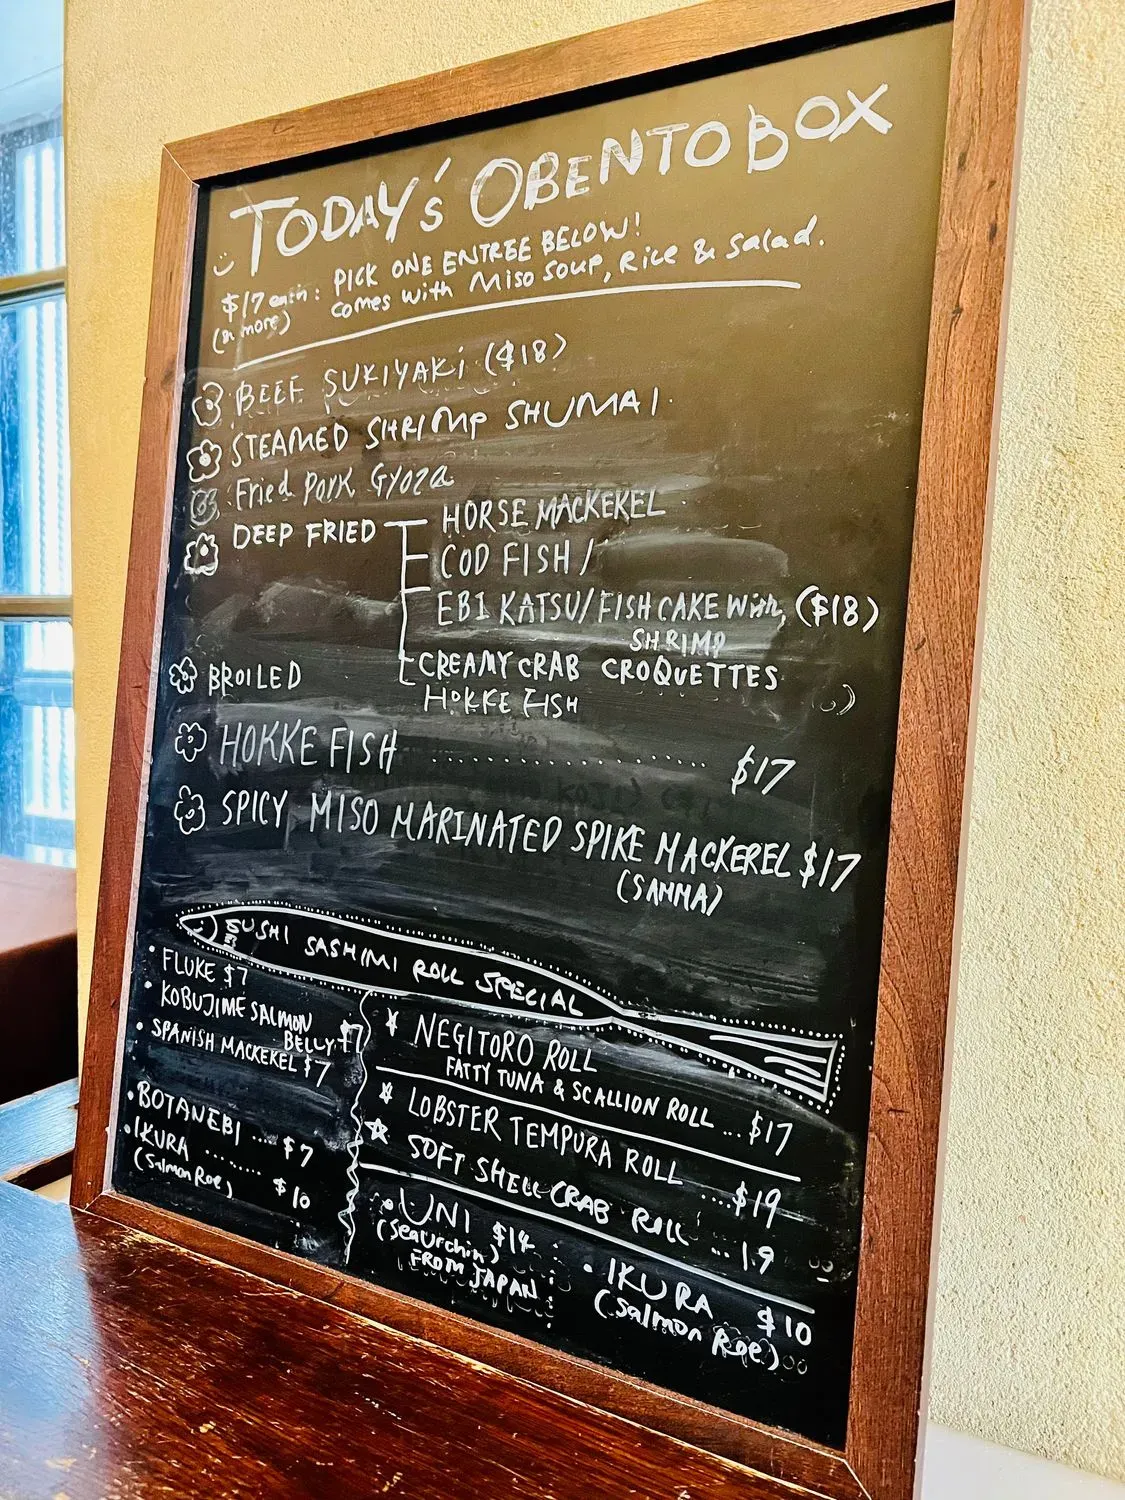 TODAY'S OBENTO BOX
$17 each: PICK ONE ENTREE BELOW!
(or more) comes with Miso soup, Rice & salad.
BEEF SUKIYAKi ($18)
STEAMED SHRIMP SHUMAI
Fried PORK GYOZA
DEEP FRIED
HORSE MACKEKEL
COD FISH /
EBI KATSU/FISH CAKE With, ($18)
SHRIMP
CREAMY CRAB CROQUETTES
BROILED
HOKKE FISH
HOKKE FISH ............ $17
SPICY MISO MARINATED SPIKE MACKEREL $17
(SANMA)
SUSHI SASHIMI ROLL SPECIAL
• FLUKE $7
• KOBUJIME SALMON
BELLY $7
• SPANISH MACKEKEL $7
• BOTANEBI .... $7
• IKURA ........ $10
(Salmon Roe)
NEGITORO ROLL
FATTY TUNA & SCALLION ROLL ... $17
LOBSTER TEMPURA ROLL .... $19
SOFT SHELL CRAB ROLL ... 19
• UNI $14
(Sea Urchin)
FROM JAPAN
• IKURA $10
(Salmon Roe)